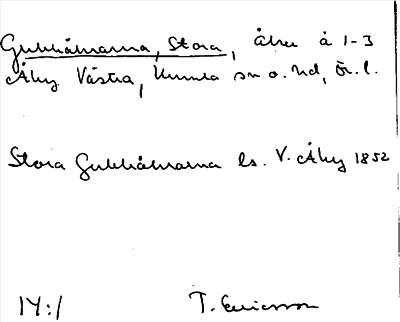 Gubbåkrarna, Stora, åker å 1-3
Åby Västra, Kumla sn o. hd, Ör. l.
Stora Gubbåkrarna ls. V. Åby 1852
14:1
T. Ericsson